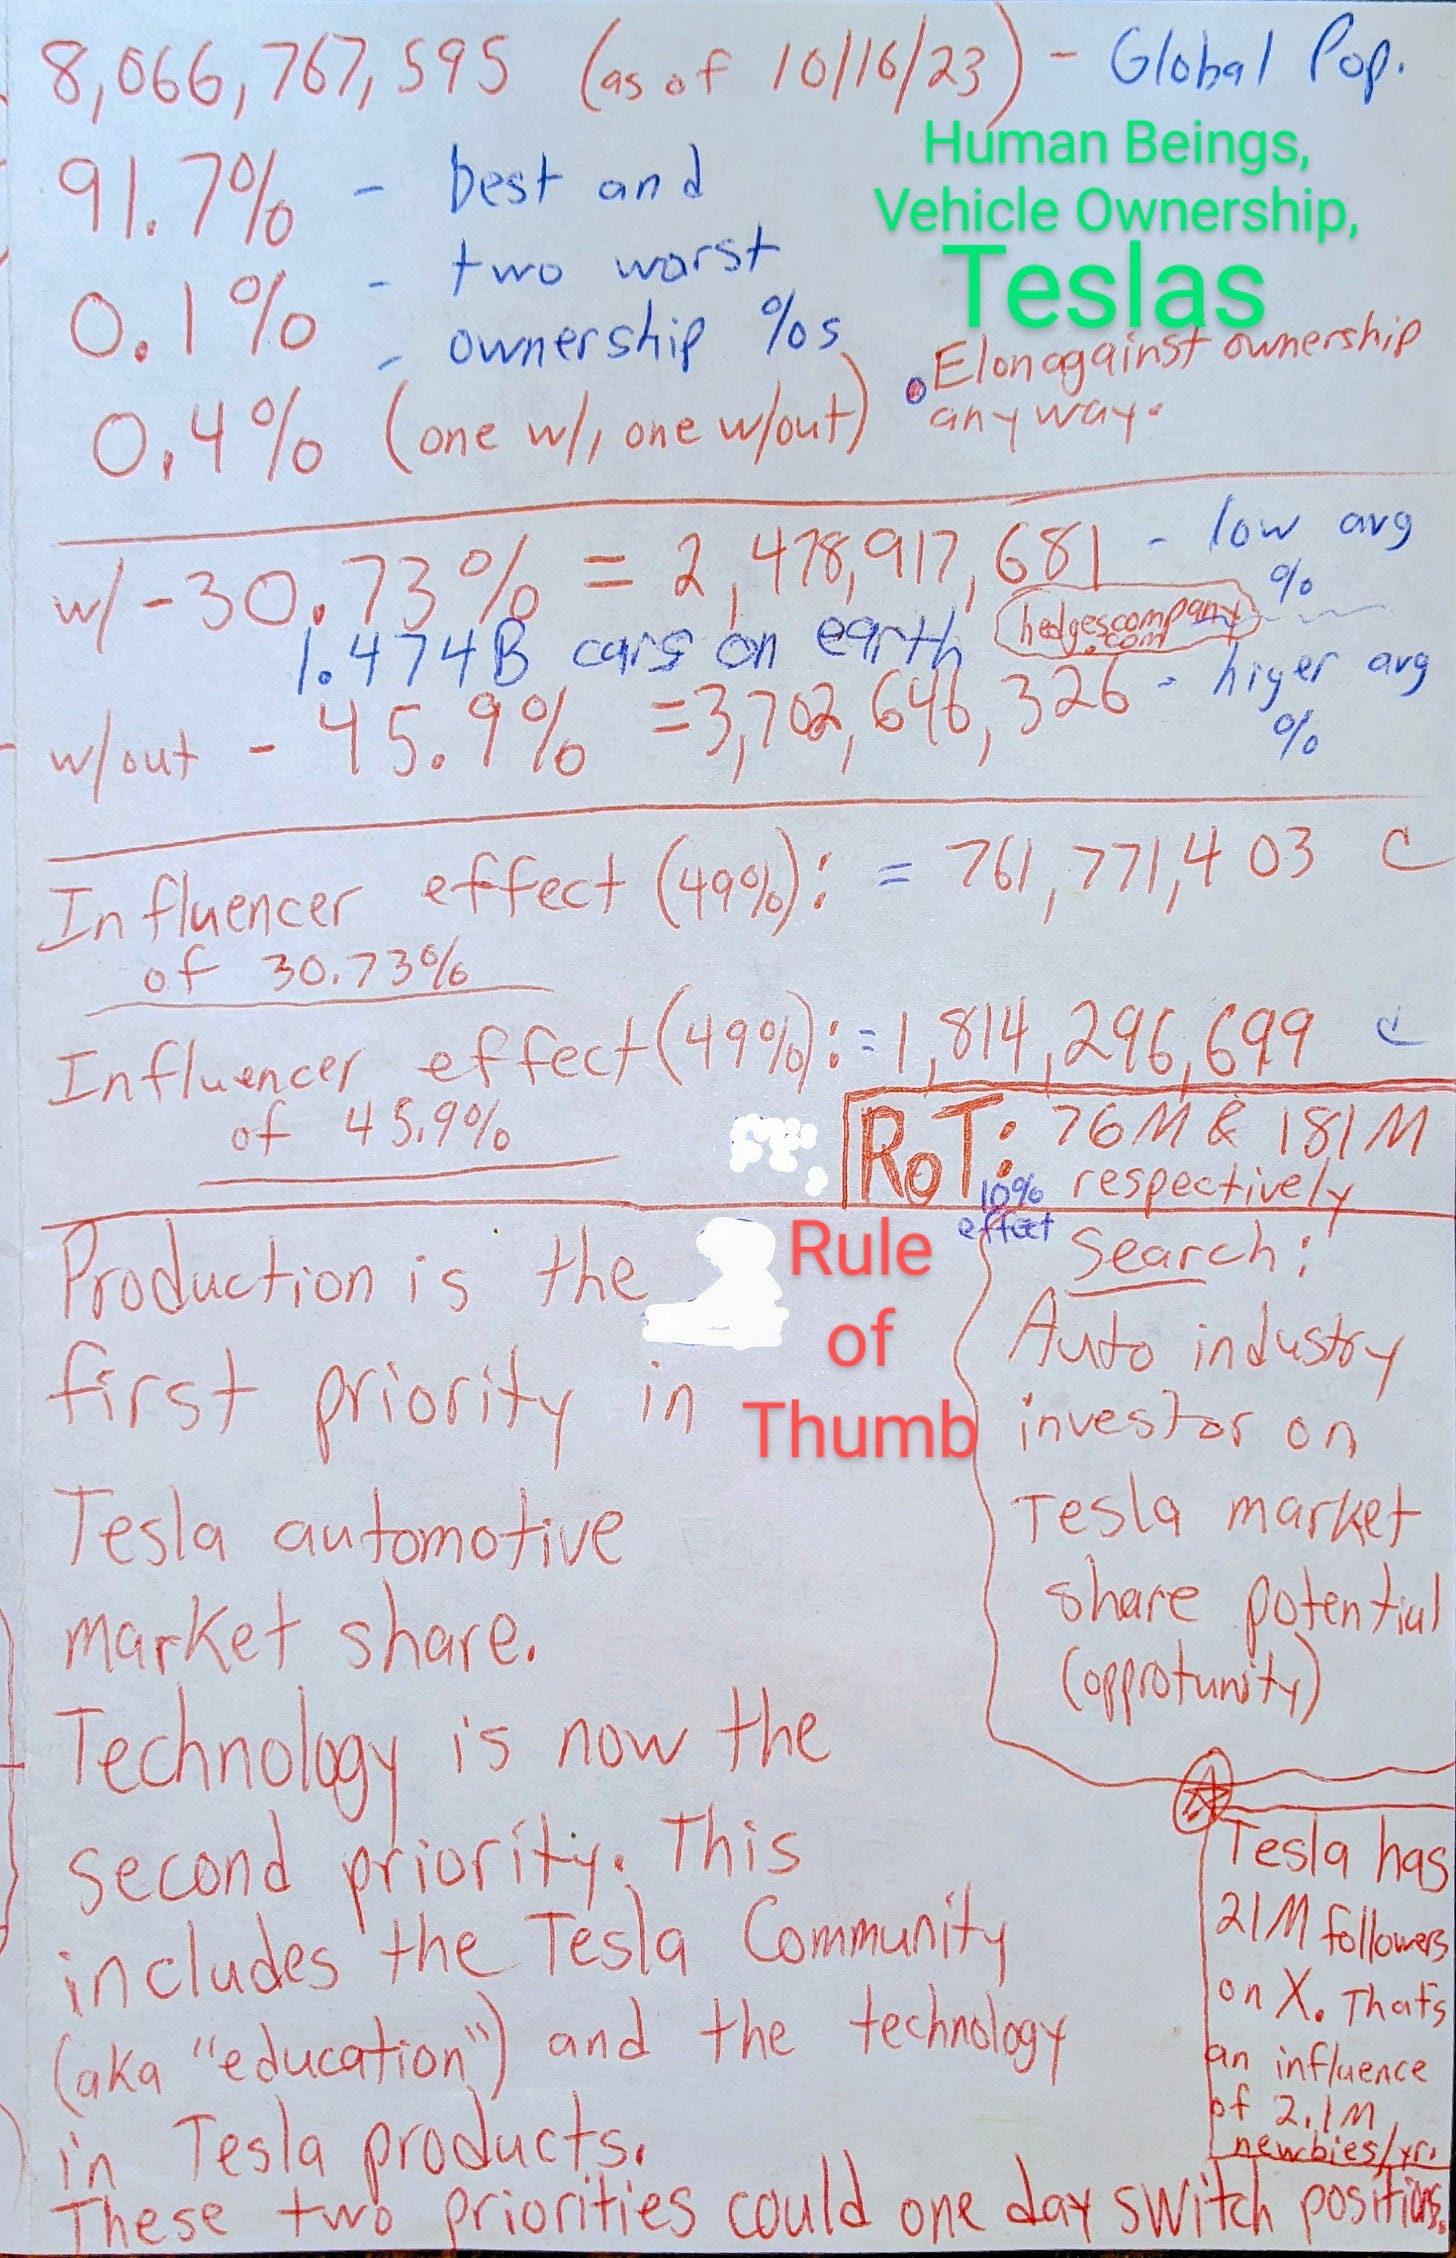 8,066,767,595 (as of 10/16/23) - Global Pop.
Human Beings,
Vehicle Ownership,
Teslas
91.7% - best and
0.1% - two worst
- ownership %s
0.4% (one w/, one w/out)
• Elon against ownership
anyway.
w/ - 30.73% = 2,478,917,681 - low avg
%
1.474B cars on earth
hedgescompany
.com
w/out - 45.9% = 3,702,646,326 - higer avg
%
Influencer effect (49%): = 761,771,403 C
of 30.73%
Influencer effect (49%): = 1,814,296,699 C
of 45.9%
RoT: 76M & 181M
respectively
10%
effect
Rule
of
Thumb
Production is the
first priority in
Tesla automotive
market share.
Technology is now the
second priority. This
includes the Tesla Community
(aka "education") and the technology
in Tesla products.
These two priorities could one day switch positions.
Search:
Auto industry
investor on
Tesla market
share potential
(opprotunity)
Tesla has
21M followers
on X. That's
an influence
of 2.1M
newbies/yr.